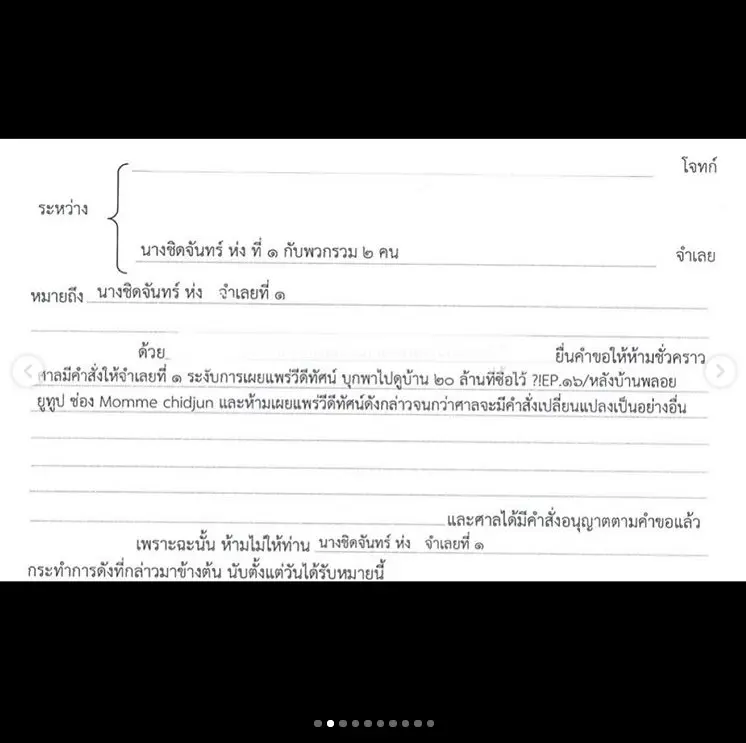 โจทก์
ระหว่าง
นางชิดจันทร์ ห่ง ที่ ๑ กับพวกรวม ๒ คน จำเลย
หมายถึง นางชิดจันทร์ ห่ง จำเลยที่ ๑
ด้วย ยื่นคำขอให้ห้ามชั่วคราว
ศาลมีคำสั่งให้จำเลยที่ ๑ ระงับการเผยแพร่วีดีทัศน์ บุกพาไปดูบ้าน ๒๐ ล้านที่ซื้อไว้ ?!EP.๑๖/หลังบ้านพลอย
ยูทูป ช่อง Momme chidjun และห้ามเผยแพร่วีดีทัศน์ดังกล่าวจนกว่าศาลจะมีคำสั่งเปลี่ยนแปลงเป็นอย่างอื่น
และศาลได้มีคำสั่งอนุญาตตามคำขอแล้ว
เพราะฉะนั้น ห้ามไม่ให้ท่าน นางชิดจันทร์ ห่ง จำเลยที่ ๑
กระทำการดังที่กล่าวมาข้างต้น นับตั้งแต่วันได้รับหมายนี้